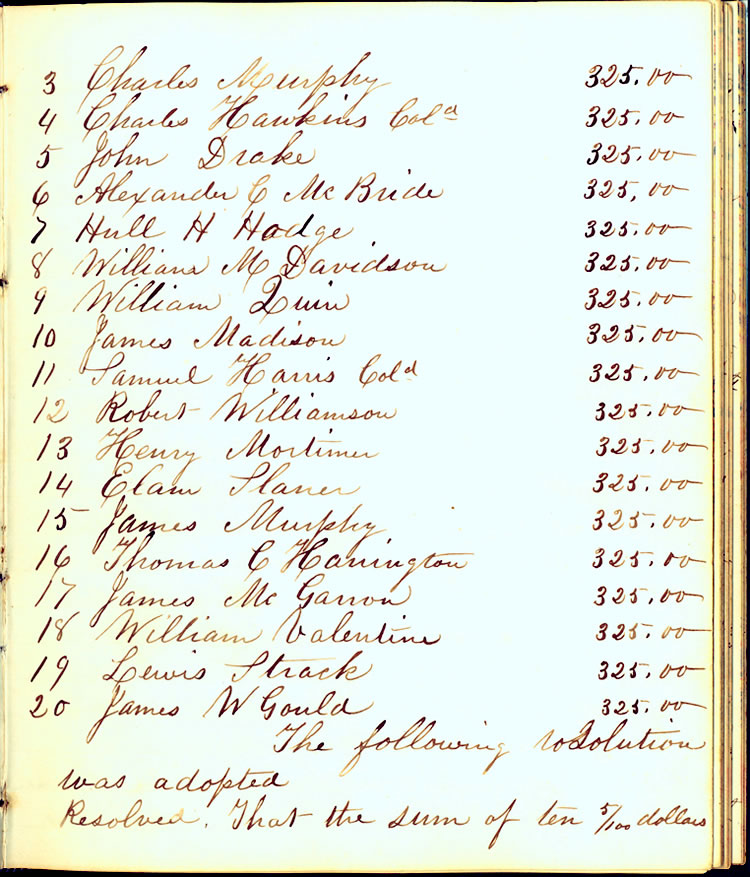 3 Charles Murphy 325.00
4 Charles Hawkins Cold 325.00
5 John Drake 325.00
6 Alexander C McBride 325.00
7 Hull H Hodge 325.00
8 William M Davidson 325.00
9 William Quin 325.00
10 James Madison 325.00
11 Samuel Harris Cold 325.00
12 Robert Williamson 325.00
13 Henry Mortimer 325.00
14 Elam Slaner 325.00
15 James Murphy 325.00
16 Thomas C Harrington 325.00
17 James McGarron 325.00
18 William Valentine 325.00
19 Lewis Strack 325.00
20 James W Gould 325.00
The following resolution
was adopted
Resolved. That the sum of ten 5/100 dollars